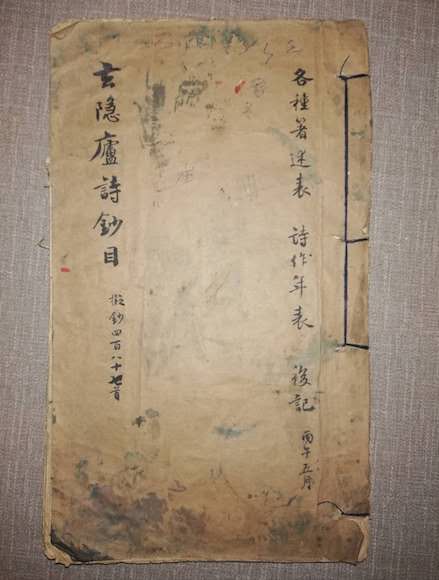 各種著述表 詩作年表 後記 丙午五月
玄隱廬詩鈔目 擬鈔四百八十七首